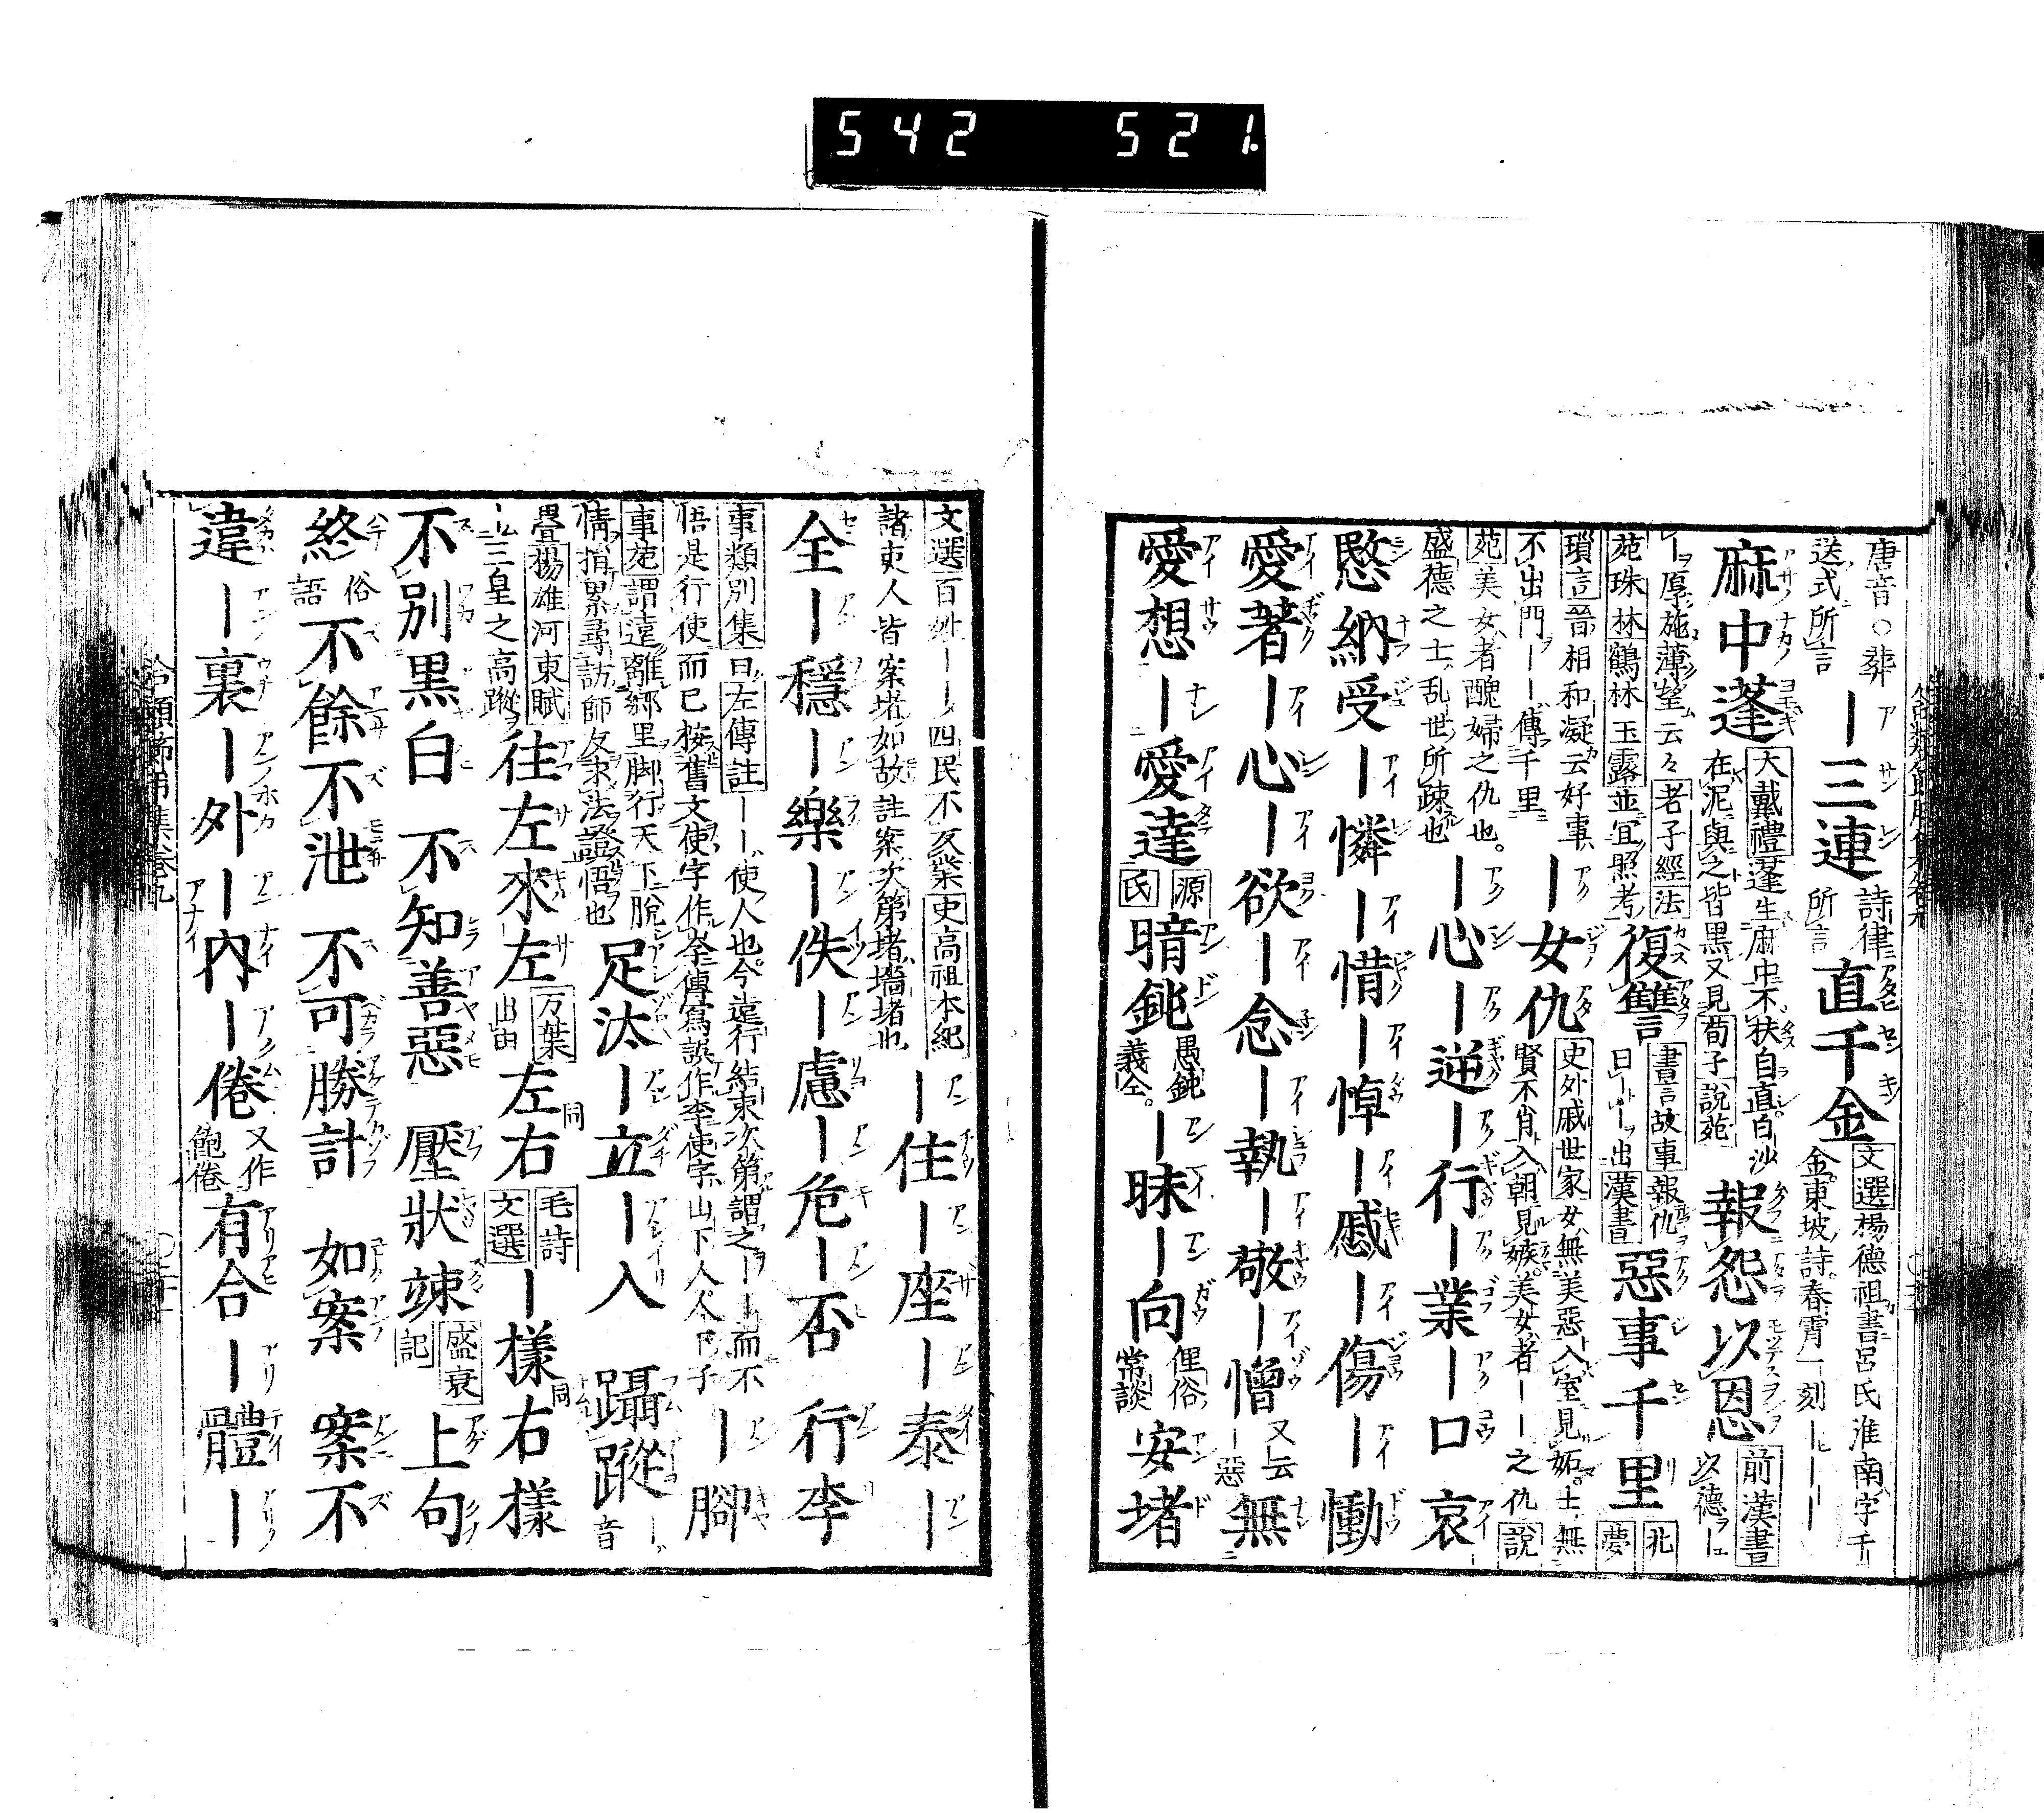 542 521
唐音○葬送式所言｜三連詩律所言直千金文選楊德祖書呂氏淮南字千金東坡詩春宵一刻｜｜｜
麻中蓬大戴禮蓬生麻中不扶自直白沙在泥與之皆黑又見荀子說苑報怨以恩前漢書以德｜
｜厚施薄望云々老子經法苑珠林鶴林玉露並宜照考復讐書言故事報仇曰｜｜出漢書惡事千里北夢
瑣言晉相和凝云好事不出門｜｜傳千里｜女仇史外戚世家女無美惡入室見妬士無賢不肖入朝見嫉美女者｜｜之仇說
苑美女者醜婦之仇也盛德之士乱世所疎也｜心｜逆｜行｜業｜口哀
愍納受｜憐｜惜｜悼｜慼｜傷｜慟
愛著｜心｜欲｜念｜執｜敬｜憎又云｜惡無
愛想｜愛達源氏暗鈍愚鈍義仝｜昧｜向俚俗常談安堵
文選百姓｜｜四民不反業史高祖本紀諸吏人皆案堵如故註案次第堵墻堵也｜住｜座｜泰｜
全｜穩｜樂｜佚｜慮｜危｜否行李
事類別集曰左傳註｜｜使人也今遠行結束次第謂之｜｜而不悟是行使而已按舊文使字作㞶傳寫誤作李使字山下人人下子｜腳
事苑謂遠離鄉里脚行天下脫情捐累尋訪師友求法證悟也足汰｜立｜入躡蹤音
疊揚雄河東賦｜三皇之高蹤往左來左万葉出由左右同毛詩文選｜樣同右樣
不別黑白不知善惡壓狀竦盛衰記上句
終俗語不餘不泄不可勝計如案案不
違｜裏｜外｜內｜倦又作飽倦有合｜體｜